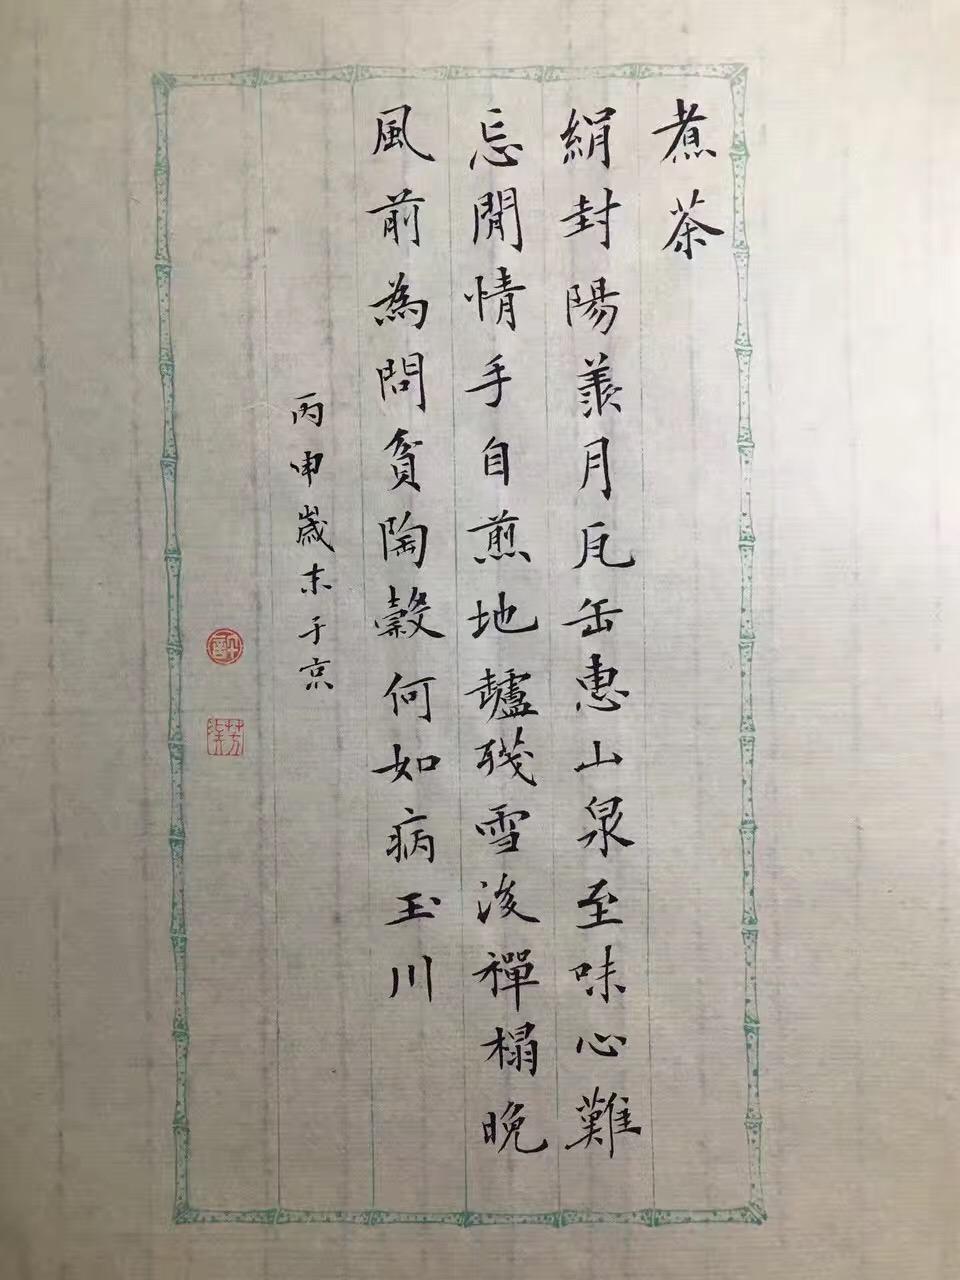 煮茶
絹封陽羨月瓦缶惠山泉至味心難
忘閒情手自煎地壚殘雪後禪榻晚
風前為問貧陶穀何如病玉川
丙申歲末子京